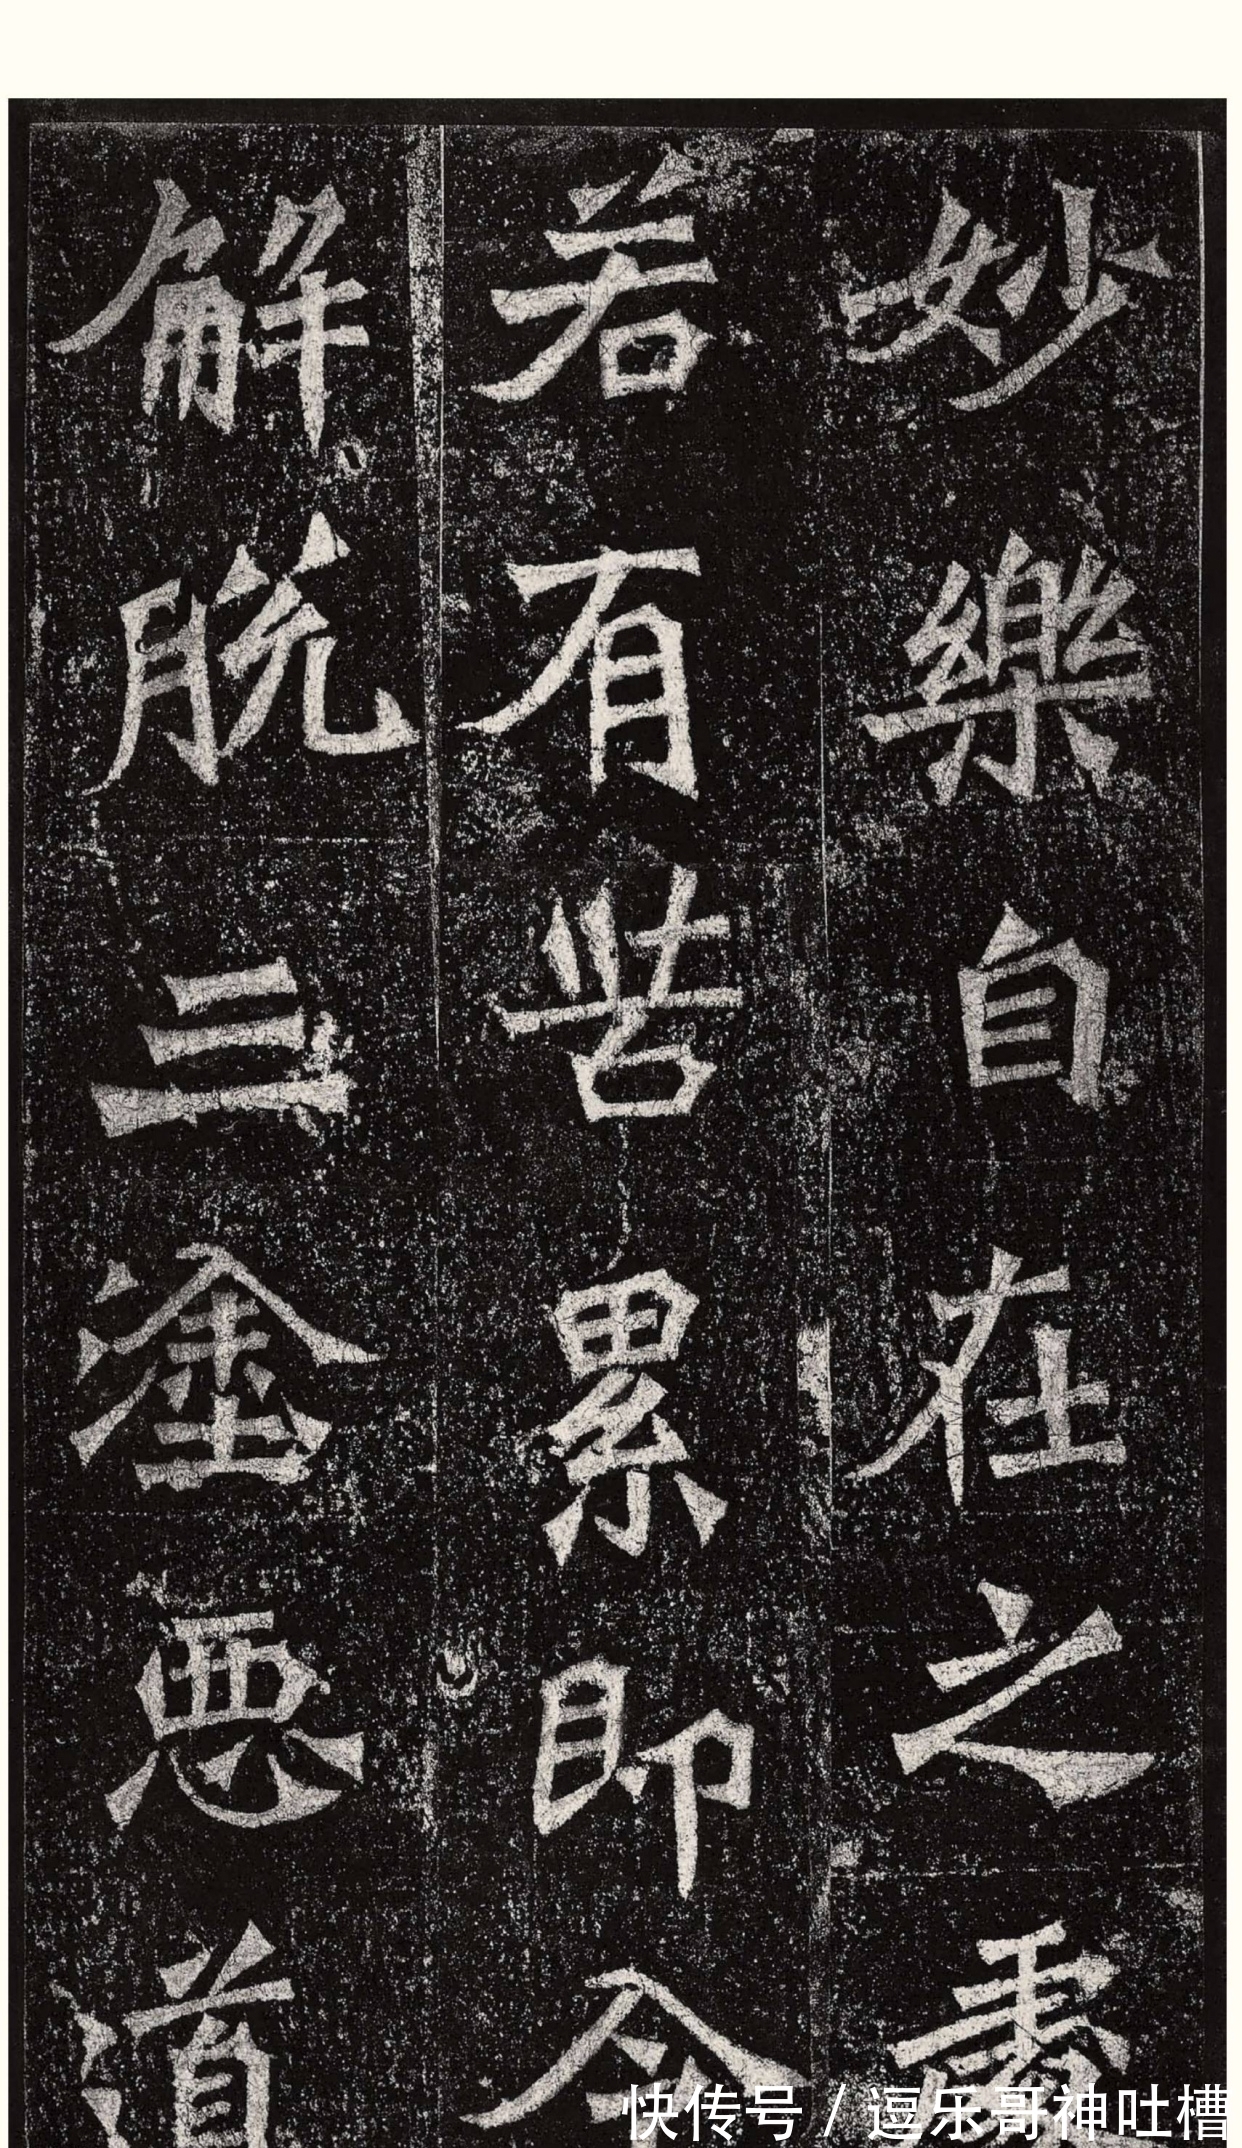 妙樂自在之處
若有苦累即令
解脫三塗惡道
快传号 / 逗乐哥神吐槽